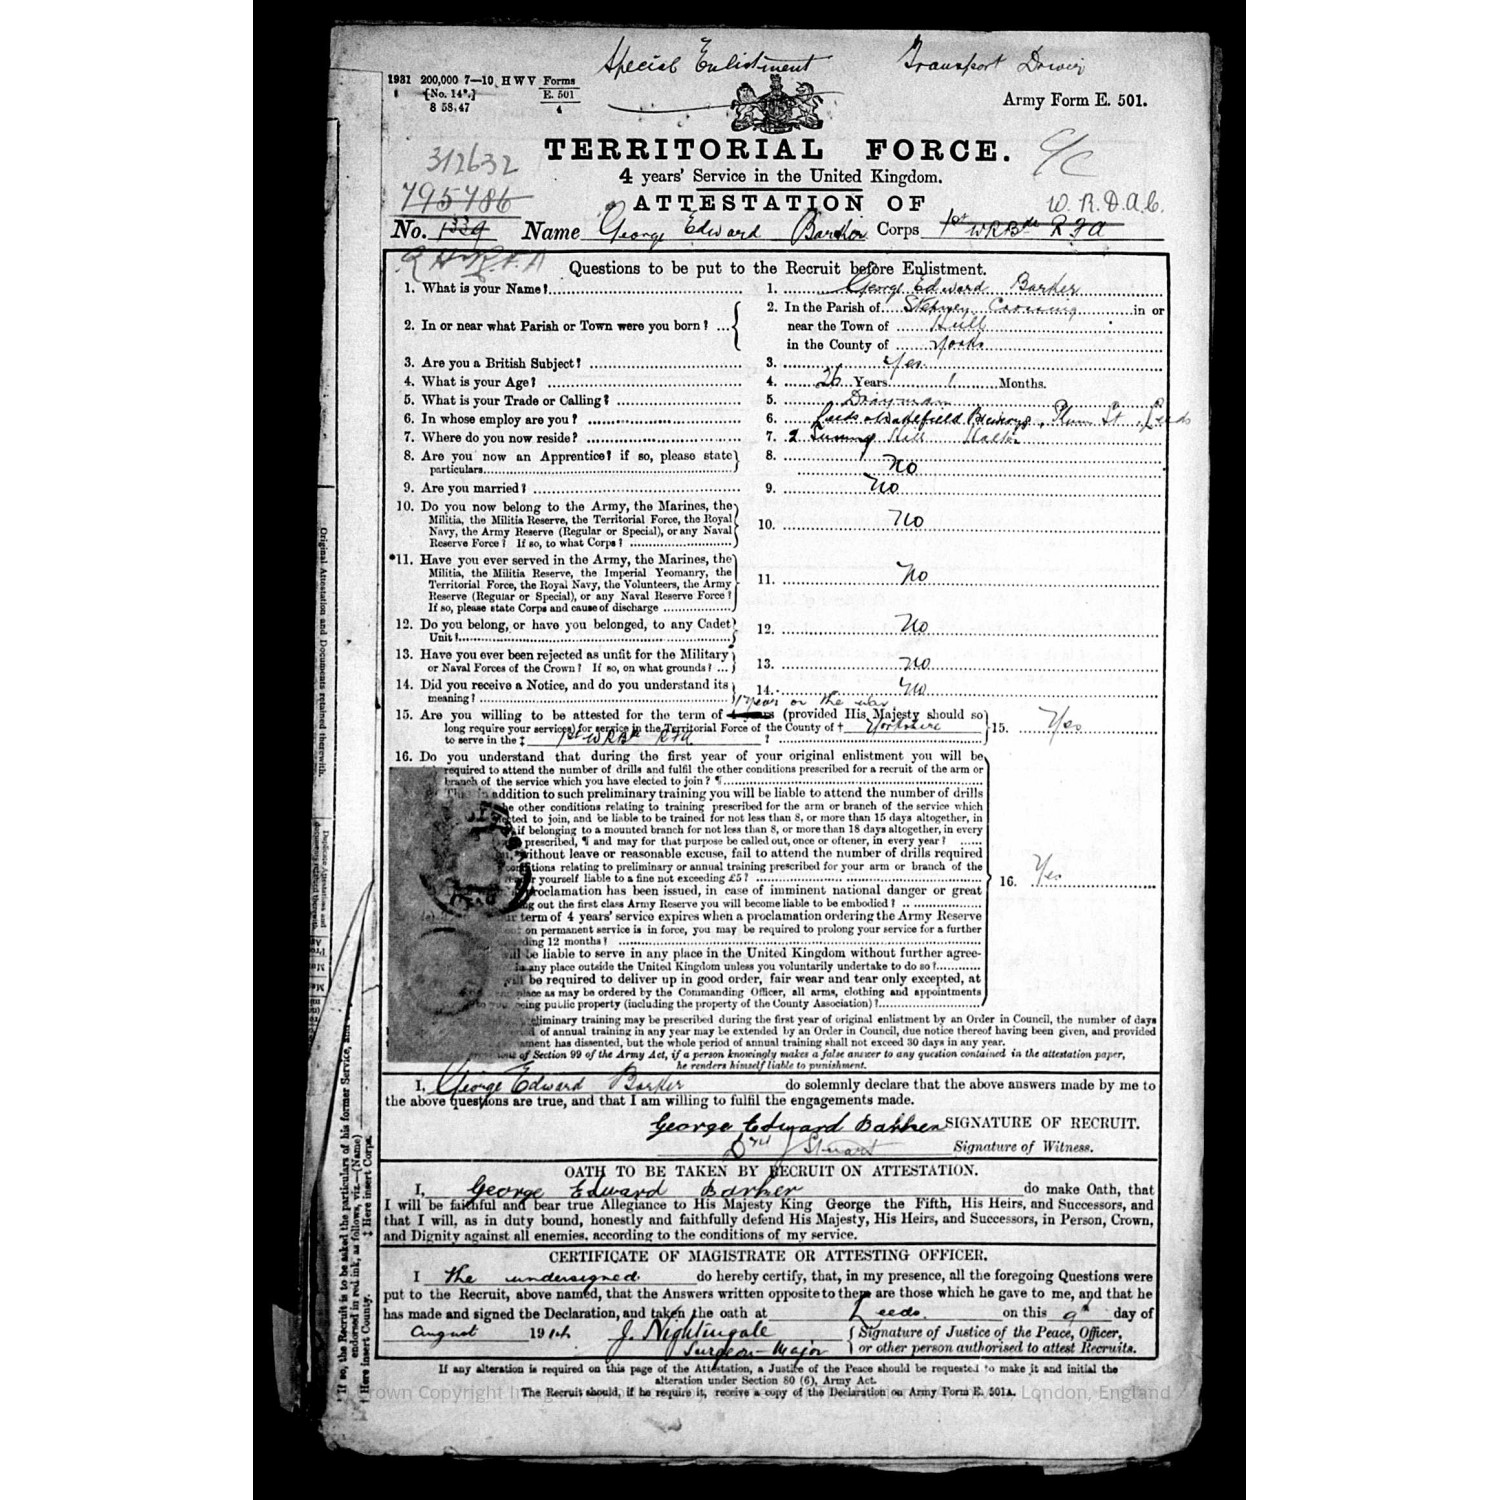 Special Enlistment Transport Driver
1931 200,000 7—10 H W V Forms
[No. 14*.] E. 501
8 58.47 4
Army Form E. 501.
312632
TERRITORIAL FORCE.
4 years' Service in the United Kingdom.
795786
ATTESTATION OF
W. R. D. A. C.
No. 1339 Name George Edward Barker Corps 1st WRBde RFA
Questions to be put to the Recruit before Enlistment.
1. What is your Name? 1. George Edward Barker
2. In or near what Parish or Town were you born? ... 2. In the Parish of Stepney Crossing in or
near the Town of Hull
in the County of Yorks
3. Are you a British Subject? 3. Yes
4. What is your Age? 4. 26 Years 1 Months.
5. What is your Trade or Calling? 5. Drayman
6. In whose employ are you? 6. Leeds & Wakefield Brewerys, Plum St, Leeds
7. Where do you now reside? 7. 2 Hill
8. Are you now an Apprentice? if so, please state
particulars 8. No
9. Are you married? 9. No
10. Do you now belong to the Army, the Marines, the
Militia, the Militia Reserve, the Territorial Force, the Royal
Navy, the Army Reserve (Regular or Special), or any Naval
Reserve Force? If so, to what Corps? 10. No
*11. Have you ever served in the Army, the Marines, the
Militia, the Militia Reserve, the Imperial Yeomanry, the
Territorial Force, the Royal Navy, the Volunteers, the Army
Reserve (Regular or Special), or any Naval Reserve Force?
If so, please state Corps and cause of discharge 11. No
12. Do you belong, or have you belonged, to any Cadet
Unit? 12. No
13. Have you ever been rejected as unfit for the Military
or Naval Forces of the Crown? If so, on what grounds? ... 13. No
14. Did you receive a Notice, and do you understand its
meaning? 14. No
1 year or the war
15. Are you willing to be attested for the term of 4 years (provided His Majesty should so
long require your services) for service in the Territorial Force of the County of † Yorkshire
to serve in the ‡ 1st WRBde RFA ? 15. Yes
16. Do you understand that during the first year of your original enlistment you will be
required to attend the number of drills and fulfil the other conditions prescribed for a recruit of the arm or
branch of the service which you have elected to join? ¶
addition to such preliminary training you will be liable to attend the number of drills
other conditions relating to training prescribed for the arm or branch of the service which
to join, and be liable to be trained for not less than 8, or more than 15 days altogether, in
if belonging to a mounted branch for not less than 8, or more than 18 days altogether, in every
prescribed, ¶ and may for that purpose be called out, once or oftener, in every year?
without leave or reasonable excuse, fail to attend the number of drills required
relating to preliminary or annual training prescribed for your arm or branch of the
yourself liable to a fine not exceeding £5?
proclamation has been issued, in case of imminent national danger or great
out the first class Army Reserve you will become liable to be embodied?
term of 4 years' service expires when a proclamation ordering the Army Reserve
on permanent service is in force, you may be required to prolong your service for a further
12 months?
be liable to serve in any place in the United Kingdom without further agree-
any place outside the United Kingdom unless you voluntarily undertake to do so?
be required to deliver up in good order, fair wear and tear only excepted, at
place as may be ordered by the Commanding Officer, all arms, clothing and appointments
being public property (including the property of the County Association)?
16. Yes
preliminary training may be prescribed during the first year of original enlistment by an Order in Council, the number of days
of annual training in any year may be extended by an Order in Council, due notice thereof having been given, and provided
has dissented, but the whole period of annual training shall not exceed 30 days in any year.
of Section 99 of the Army Act, if a person knowingly makes a false answer to any question contained in the attestation paper,
he renders himself liable to punishment.
I, George Edward Barker do solemnly declare that the above answers made by me to
the above questions are true, and that I am willing to fulfil the engagements made.
George Edward Barker SIGNATURE OF RECRUIT.
Stuart Signature of Witness.
OATH TO BE TAKEN BY RECRUIT ON ATTESTATION.
I, George Edward Barker do make Oath, that
I will be faithful and bear true Allegiance to His Majesty King George the Fifth, His Heirs, and Successors, and
that I will, as in duty bound, honestly and faithfully defend His Majesty, His Heirs, and Successors, in Person, Crown,
and Dignity against all enemies, according to the conditions of my service.
CERTIFICATE OF MAGISTRATE OR ATTESTING OFFICER.
I the undersigned do hereby certify, that, in my presence, all the foregoing Questions were
put to the Recruit, above named, that the Answers written opposite to them are those which he gave to me, and that he
has made and signed the Declaration, and taken the oath at Leeds on this 9th day of
August 1914 J. Nightingale Signature of Justice of the Peace, Officer,
Surgeon-Major or other person authorised to attest Recruits.
If any alteration is required on this page of the Attestation, a Justice of the Peace should be requested to make it and initial the
alteration under Section 80 (6), Army Act.
The Recruit should, if he require it, receive a copy of the Declaration on Army Form E. 501A.
Crown Copyright Archives, London, England
Original Attestation and Documents retained therewith.
* If so, the Recruit is to be asked the particulars of his former Service, and
endorsed in red ink, as follows, viz.—(Name)
† Here insert County. ‡ Here insert Corps.